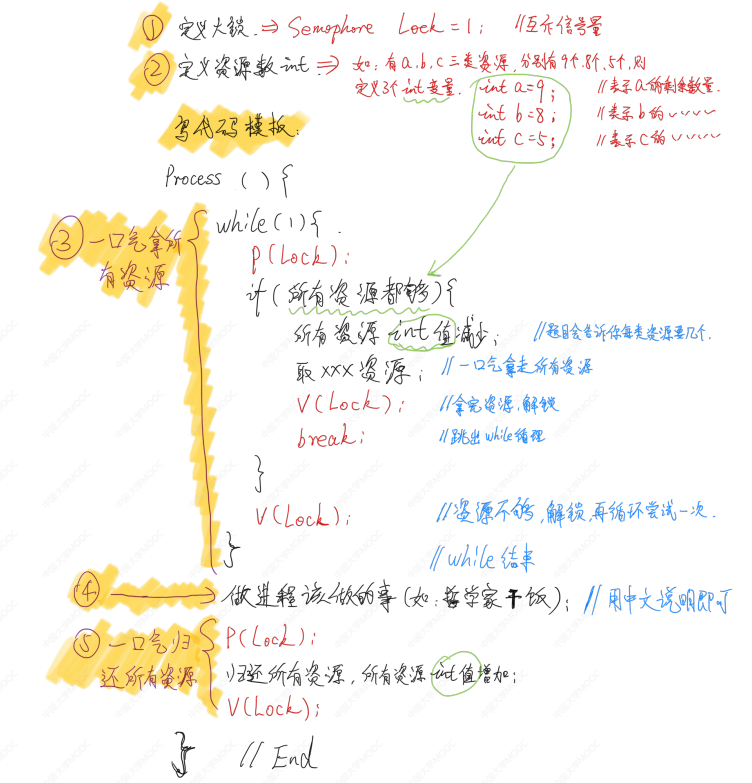 ① 定义大锁. ⇒ Semophore Lock = 1; //互斥信号量
② 定义资源数int. ⇒ 如: 有a.b.c三类资源,分别有9个.8个.5个,则
定义3个int变量. int a=9; //表示a的剩余数量.
int b=8; //表示b的 〃〃〃〃
int C=5; //表示C的 〃〃〃〃
写代码模板:
Process () {
while(1){
③ 一口气拿所
有资源
P(Lock);
if(所有资源都够){
所有资源int值减少; //题目会告诉你每类资源要几个.
取xxx资源; //一口气拿走所有资源
V(Lock); //拿完资源,解锁
break; //跳出while循环
}
V(Lock); //资源不够,解锁,再循环尝试一次.
} //while结束
④ 做进程该做的事(如:哲学家干饭); //用中文说明即可
⑤ 一口气归
还所有资源
P(Lock);
归还所有资源,所有资源int值增加;
V(Lock);
} // End